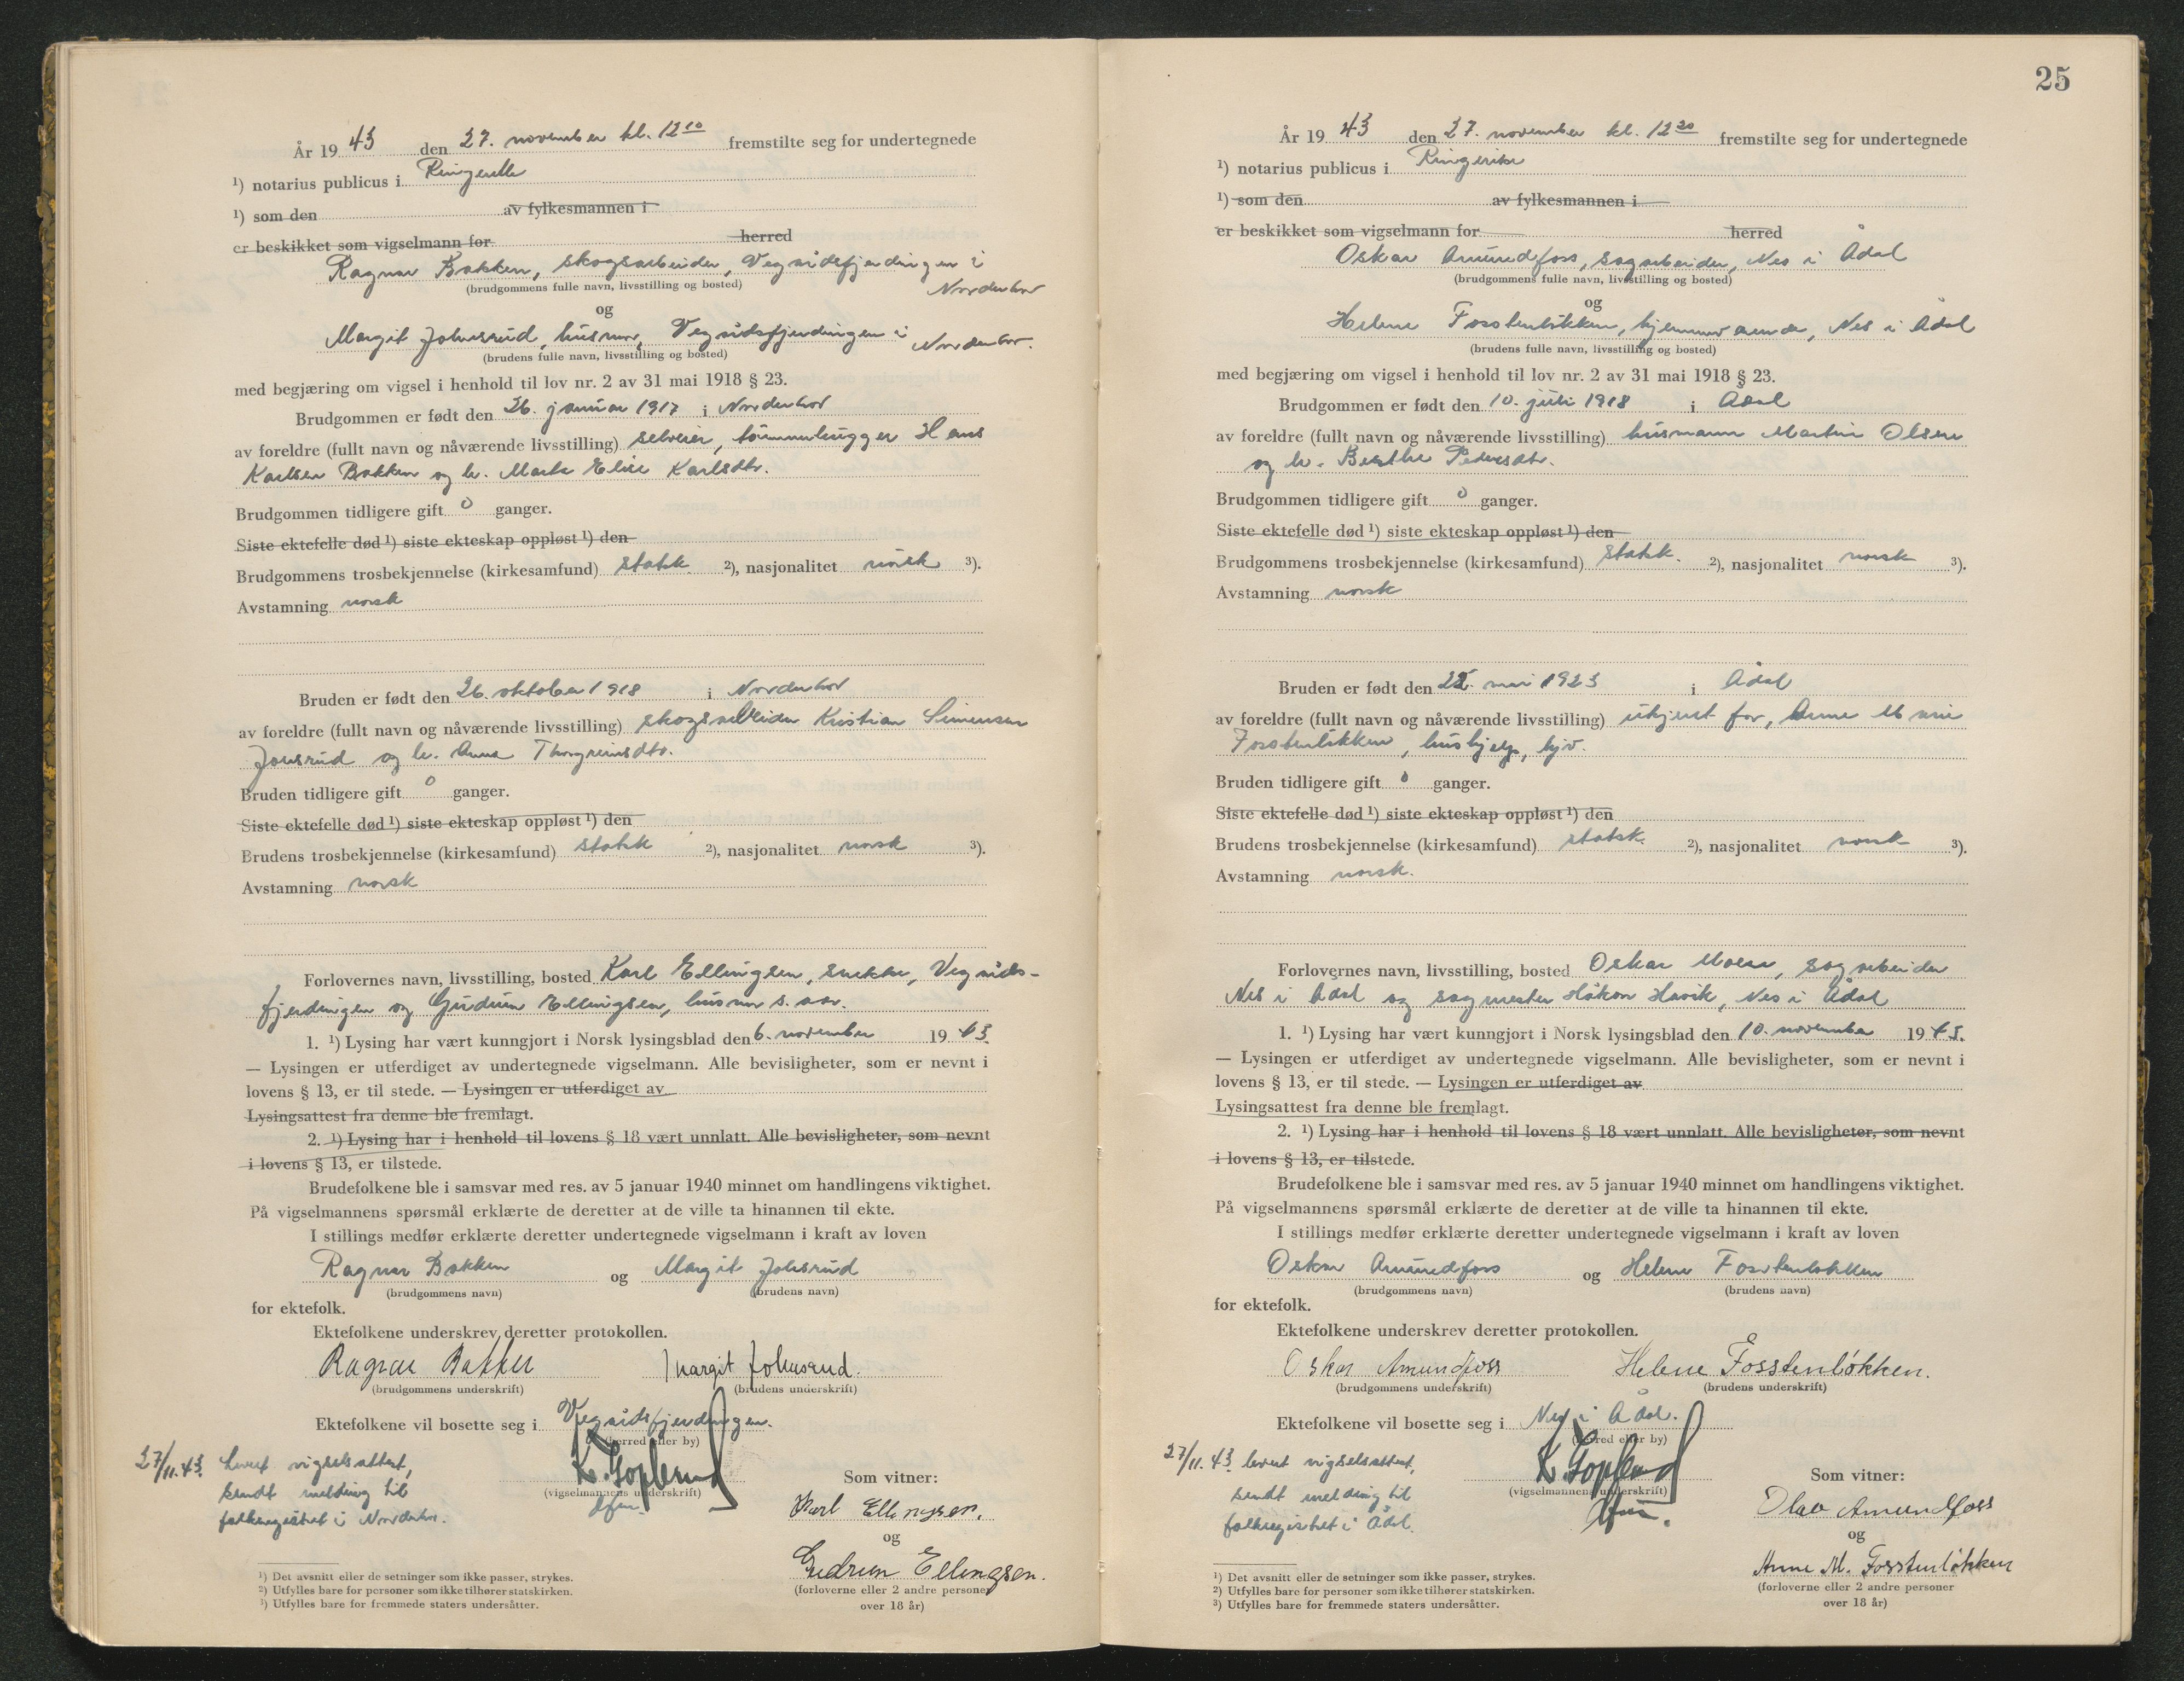 År 19 43 den 27. november kl. 12 10 fremstilte seg for undertegnede
1) notarius publicus i Ringerike
1) som den av fylkesmannen i
er beskikket som vigselmann for herred
Ragnar Bakken, skogsarbeider, Vegårdsfjerdingen i
Norderhov
(brudgommens fulle navn, livsstilling og bosted)
og
Margit Johnsrud, husmor, Vegårdsfjerdingen i Norderhov.
(brudens fulle navn, livsstilling og bosted)
med begjæring om vigsel i henhold til lov nr. 2 av 31 mai 1918 § 23.
Brudgommen er født den 26. januar 1917 i Norderhov
av foreldre (fullt navn og nåværende livsstilling) selveier, tømmerhugger Hans
Karlsen Bakken og h. Marte Elise Karlsdtr.
Brudgommen tidligere gift 0 ganger.
Siste ektefelle død 1) siste ekteskap oppløst 1) den
Brudgommens trosbekjennelse (kirkesamfund) statsk. 2), nasjonalitet norsk 3).
Avstamning norsk
Bruden er født den 26. oktober 1918 i Norderhov
av foreldre (fullt navn og nåværende livsstilling) skogsarbeider Kristian Simensen
Jonsrud og h. Anna Thorgrimsdtr.
Bruden tidligere gift 0 ganger.
Siste ektefelle død 1) siste ekteskap oppløst 1) den
Brudens trosbekjennelse (kirkesamfund) statsk 2), nasjonalitet norsk 3).
Avstamning norsk
Forlovernes navn, livsstilling, bosted Karl Ellingsen, snekker, Vegårds-
fjerdingen og Gudrun Ellingsen, husmor s. st.
1. 1) Lysing har vært kunngjort i Norsk lysingsblad den 6. november 19 43.
— Lysingen er utferdiget av undertegnede vigselmann. Alle bevisligheter, som er nevnt i
lovens § 13, er til stede. — Lysingen er utferdiget av
Lysingsattest fra denne ble fremlagt.
2. 1) Lysing har i henhold til lovens § 18 vært unnlatt. Alle bevisligheter, som nevnt
i lovens § 13, er tilstede.
Brudefolkene ble i samsvar med res. av 5 januar 1940 minnet om handlingens viktighet.
På vigselmannens spørsmål erklærte de deretter at de ville ta hinannen til ekte.
I stillings medfør erklærte deretter undertegnede vigselmann i kraft av loven
Ragnar Bakken og Margit Johnsrud
(brudgommens navn) (brudens navn)
for ektefolk.
Ektefolkene underskrev deretter protokollen.
Ragnar Bakken Margit Johnsrud.
(brudgommens underskrift) (brudens underskrift)
Ektefolkene vil bosette seg i Vegårdsfjerdingen.
(herred eller by)
27/11.43. levert vigselsattest,
sendt melding til
folkregistret i Norderhov.
K. Gopland
(vigselmannens underskrift)
Som vitner:
Karl Ellingsen.
og
Gudrun Ellingsen.
(forloverne eller 2 andre personer
over 18 år)
1) Det avsnitt eller de setninger som ikke passer, strykes.
2) Utfylles bare for personer som ikke tilhører statskirken.
3) Utfylles bare for fremmede staters undersåtter.
25
År 19 43 den 27. november kl. 12 20 fremstilte seg for undertegnede
1) notarius publicus i Ringerike
1) som den av fylkesmannen i
er beskikket som vigselmann for herred
Oskar Amundfoss, sagarbeider, Nes i Ådal
(brudgommens fulle navn, livsstilling og bosted)
og
Helene Fosstenløkken, hjemmeværende, Nes i Ådal
(brudens fulle navn, livsstilling og bosted)
med begjæring om vigsel i henhold til lov nr. 2 av 31 mai 1918 § 23.
Brudgommen er født den 10. juli 1918 i Ådal
av foreldre (fullt navn og nåværende livsstilling) husmann Martin Olsen
og h. Berthe Pedersdtr.
Brudgommen tidligere gift 0 ganger.
Siste ektefelle død 1) siste ekteskap oppløst 1) den
Brudgommens trosbekjennelse (kirkesamfund) statsk. 2), nasjonalitet norsk 3).
Avstamning norsk
Bruden er født den 22. mai 1923 i Ådal
av foreldre (fullt navn og nåværende livsstilling) ukjent far, Anne Marie
Fosstenløkken, hushjelp,
Bruden tidligere gift 0 ganger.
Siste ektefelle død 1) siste ekteskap oppløst 1) den
Brudens trosbekjennelse (kirkesamfund) statsk. 2), nasjonalitet norsk 3).
Avstamning norsk.
Forlovernes navn, livsstilling, bosted Oskar Moen, sagarbeider
Nes i Ådal og sagmester Håkon Havik, Nes i Ådal
1. 1) Lysing har vært kunngjort i Norsk lysingsblad den 10. november 19 43.
— Lysingen er utferdiget av undertegnede vigselmann. Alle bevisligheter, som er nevnt i
lovens § 13, er til stede. — Lysingen er utferdiget av
Lysingsattest fra denne ble fremlagt.
2. 1) Lysing har i henhold til lovens § 18 vært unnlatt. Alle bevisligheter, som nevnt
i lovens § 13, er tilstede.
Brudefolkene ble i samsvar med res. av 5 januar 1940 minnet om handlingens viktighet.
På vigselmannens spørsmål erklærte de deretter at de ville ta hinannen til ekte.
I stillings medfør erklærte deretter undertegnede vigselmann i kraft av loven
Oskar Amundfoss og Helene Fosstenløkken
(brudgommens navn) (brudens navn)
for ektefolk.
Ektefolkene underskrev deretter protokollen.
Oskar Amundfoss Helene Fosstenløkken.
(brudgommens underskrift) (brudens underskrift)
Ektefolkene vil bosette seg i Nes i Ådal.
(herred eller by)
27/11.43 levert vigselsattest,
sendt melding til
folkregistret i Ådal.
K. Gopland
(vigselmannens underskrift)
Som vitner:
Olav Amundfoss
og
Anne M. Fosstenløkken
(forloverne eller 2 andre personer
over 18 år)
1) Det avsnitt eller de setninger som ikke passer, strykes.
2) Utfylles bare for personer som ikke tilhører statskirken.
3) Utfylles bare for fremmede staters undersåtter.